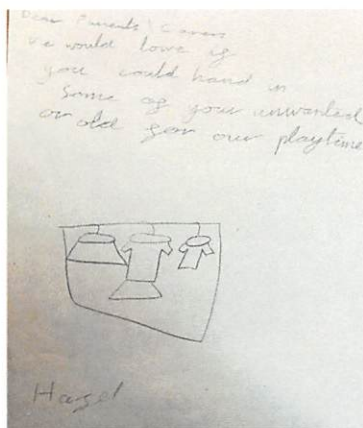 Dear Parents\Carers
we would love if
you could hand in
some of your unwanted
or old for our playtime
Hazel